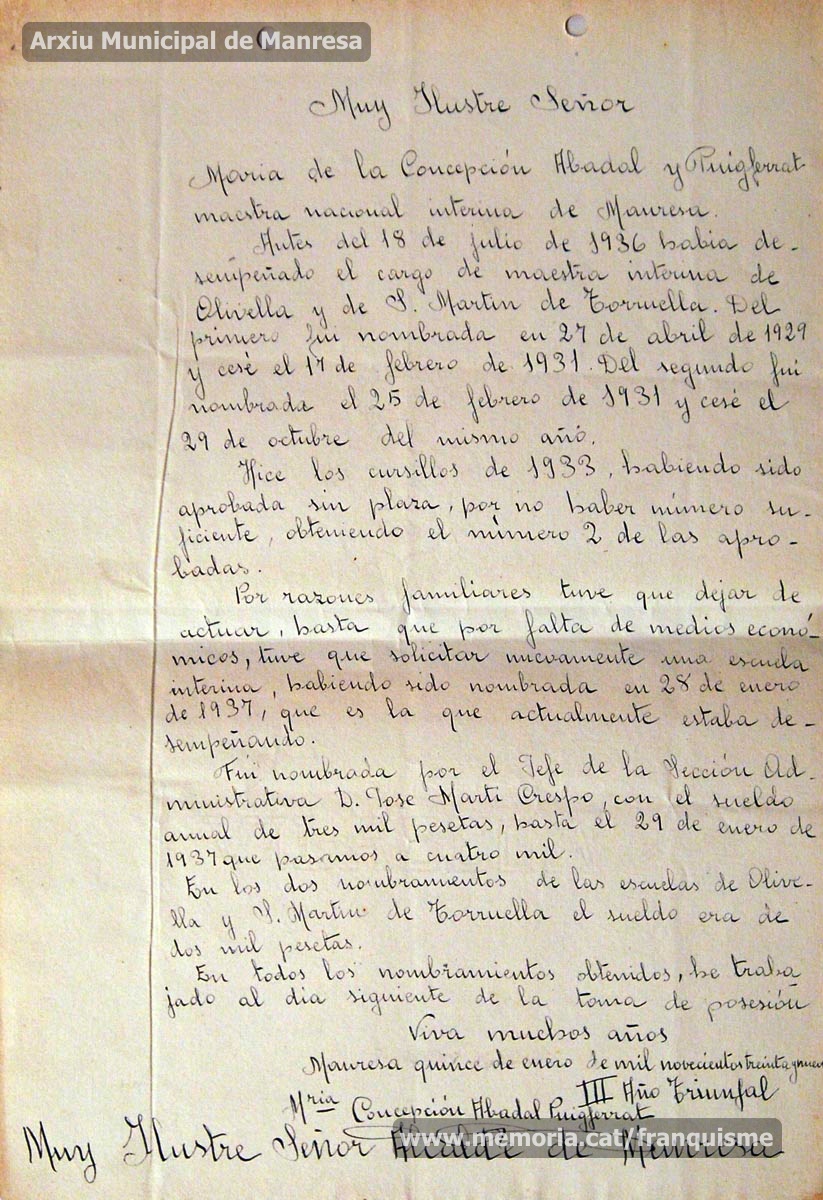 Arxiu Municipal de Manresa
Muy Ilustre Señor
Maria de la Concepción Abadal y Puigferrat
maestra nacional interina de Manresa.
Antes del 18 de julio de 1936 habia de-
sempeñado el cargo de maestra interina de
Olivella y de S. Martin de Torruella. Del
primero fui nombrada en 27 de abril de 1929
y cesé el 17 de febrero de 1931. Del segundo fui
nombrada el 25 de febrero de 1931 y cesé el
29 de octubre del mismo añó.
Hice los cursillos de 1933, habiendo sido
aprobada sin plaza, por no haber número su-
ficiente, obteniendo el número 2 de las apro-
badas.
Por razones familiares tuve que dejar de
actuar, hasta que por falta de medios econó-
micos, tuve que solicitar nuevamente una escuela
interina, habiendo sido nombrada en 28 de enero
de 1937, que es la que actualmente estaba de-
sempeñando.
Fui nombrada por el Jefe de la Sección Ad-
ministrativa D. Jose Marti Crespo, con el sueldo
anual de tres mil pesetas, hasta el 29 de enero de
1937 que pasamos a cuatro mil.
En los dos nombramientos de las escuelas de Olive-
lla y S. Martin de Torruella el sueldo era de
dos mil pesetas.
En todos los nombramientos obtenidos, he traba
jado al dia siguiente de la toma de posesión
Viva muchos años
Manresa quince de enero de mil novecientos treinta y nueve
III Año Triunfal
Mria Concepción Abadal Puigferrat
Muy Ilustre Señor Alcalde de Manresa
www.memoria.cat/franquisme